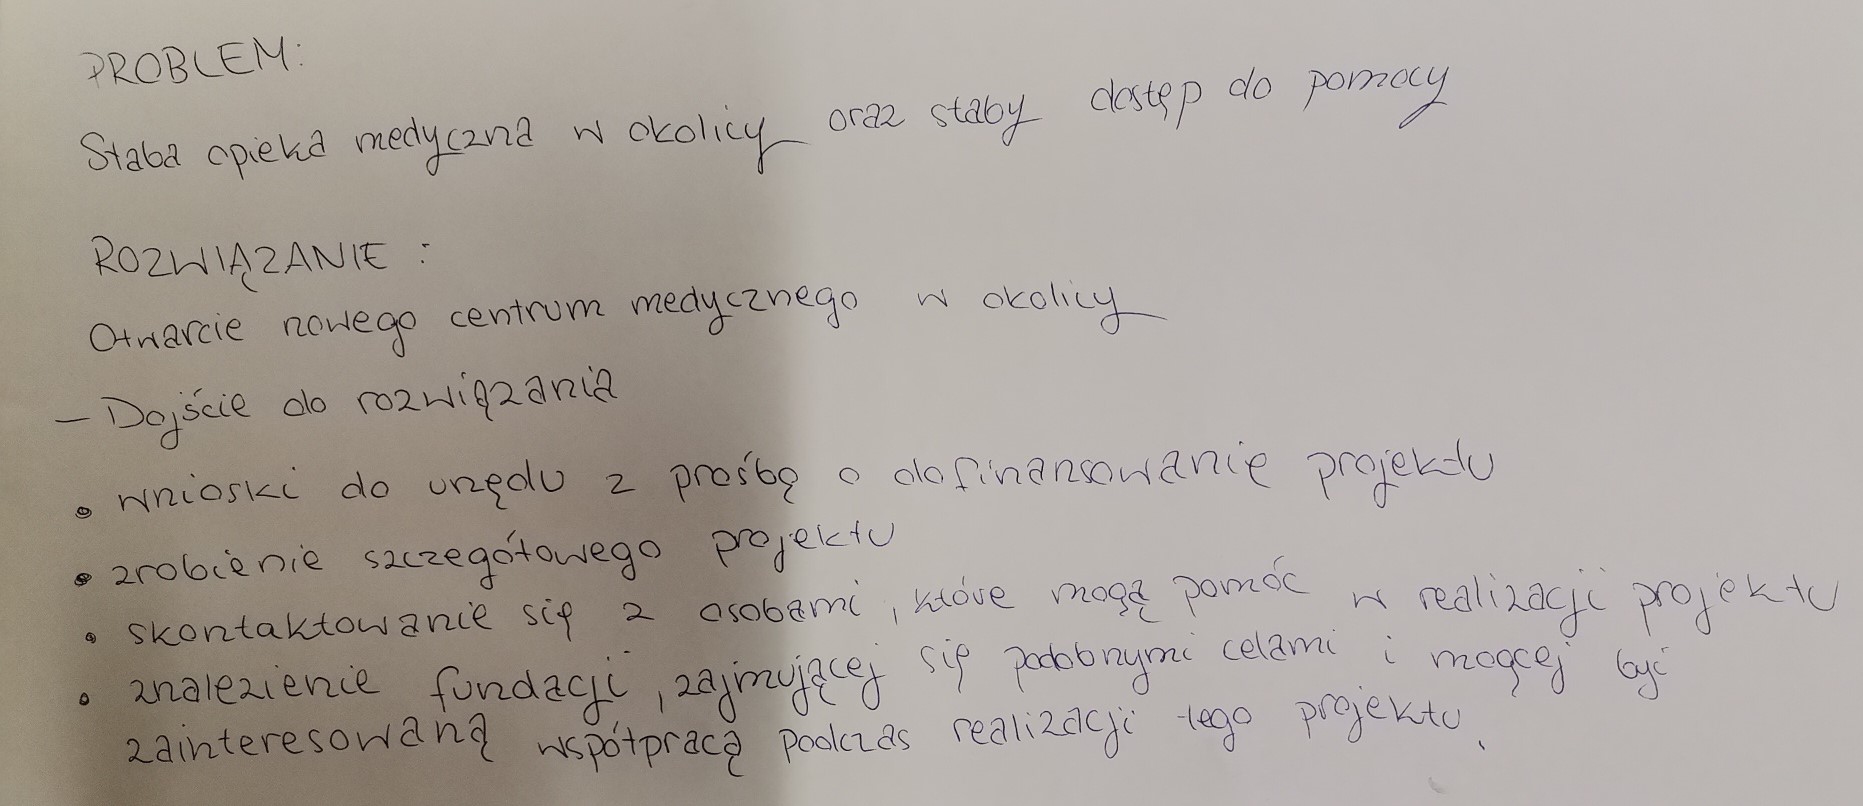 PROBLEM:
Słaba opieka medyczna w okolicy oraz słaby dostęp do pomocy
ROZWIĄZANIE :
Otwarcie nowego centrum medycznego w okolicy
– Dojście do rozwiązania
• wnioski do urzędu z prośbą o dofinansowanie projektu
• zrobienie szczegółowego projektu
• skontaktowanie się z osobami, które mogą pomóc w realizacji projektu
• znalezienie fundacji, zajmującej się podobnymi celami i mogącej być
zainteresowaną współpracą podczas realizacji tego projektu.